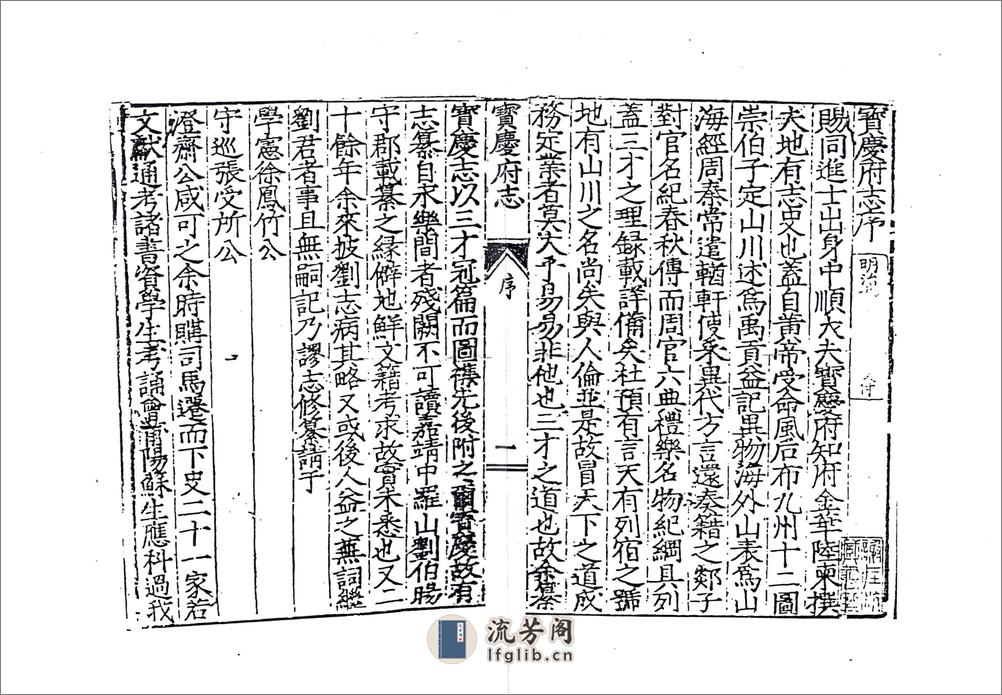 寶慶府志序
賜同進士出身中順大夫寶慶府知府金華陸柬撰
夫地有志史也蓋自黃帝受命風后布九州十二圖
崇伯子定山川述為禹貢益記異物海外山表為山
海經周秦常遣輶軒使采異代方言還奏籍之郯子
對官名紀春秋傳而周官六典禮樂名物紀綱具列
蓋三才之理録載詳備矣杜預有言天有列宿之號
地有山川之名尚矣與人倫並是故冒天下之道成
務定業者莫大乎易易非他也三才之道也故余纂
寶慶府志
序
二
寶慶志以三才冠篇而圖先後附之寶慶故有
志纂自永樂間者殘闕不可讀嘉靖中羅山劉伯暘
守郡載纂之緣僻地鮮文籍考求故實未悉也又二
十餘年余來披劉志病其略又或後人益之蕪詞繼
劉君者事且無嗣記乃謬志修纂請于
學憲徐鳳竹公
守巡張受所公
澄齋公咸可之余時購司馬遷而下史二十一家若
文獻通考諸書資學生考誦會甫陽蘇生應科過我
流芳阁
lfglib.cn